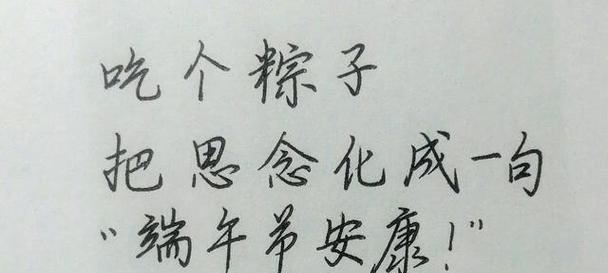 吃个粽子
把思念化成一句
“端午节安康！”